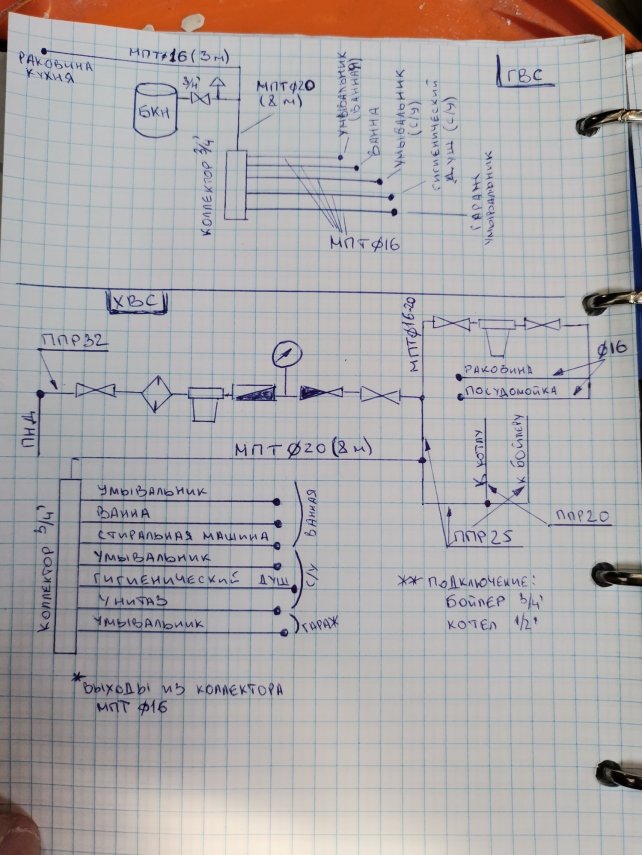 ГВС
РАКОВИНА
КУХНЯ
МПТ⌀16 (3м)
3/4'
БКН
МПТ⌀20
(8 м)
КОЛЛЕКТОР 3/4'
УМЫВАЛЬНИК
(ВАННАЯ)
ВАННА
УМЫВАЛЬНИК
(С/У)
ГИГИЕНИЧЕСКИЙ
ДУШ (С/У)
ГАРАЖ
УМЫВАЛЬНИК
МПТ⌀16
ХВС
ППР32
ПНД
МПТ⌀16-20
⌀16
РАКОВИНА
ПОСУДОМОЙКА
МПТ⌀20 (8м)
К КОТЛУ
К БОЙЛЕРУ
ППР25
ППР20
КОЛЛЕКТОР 3/4'
УМЫВАЛЬНИК
ВАННА
СТИРАЛЬНАЯ МАШИНА
ВАННАЯ
УМЫВАЛЬНИК
ГИГИЕНИЧЕСКИЙ ДУШ
УНИТАЗ
С/У
УМЫВАЛЬНИК
ГАРАЖ
** ПОДКЛЮЧЕНИЕ:
БОЙЛЕР 3/4'
КОТЕЛ 1/2'
* ВЫХОДЫ ИЗ КОЛЛЕКТОРА
МПТ ⌀16